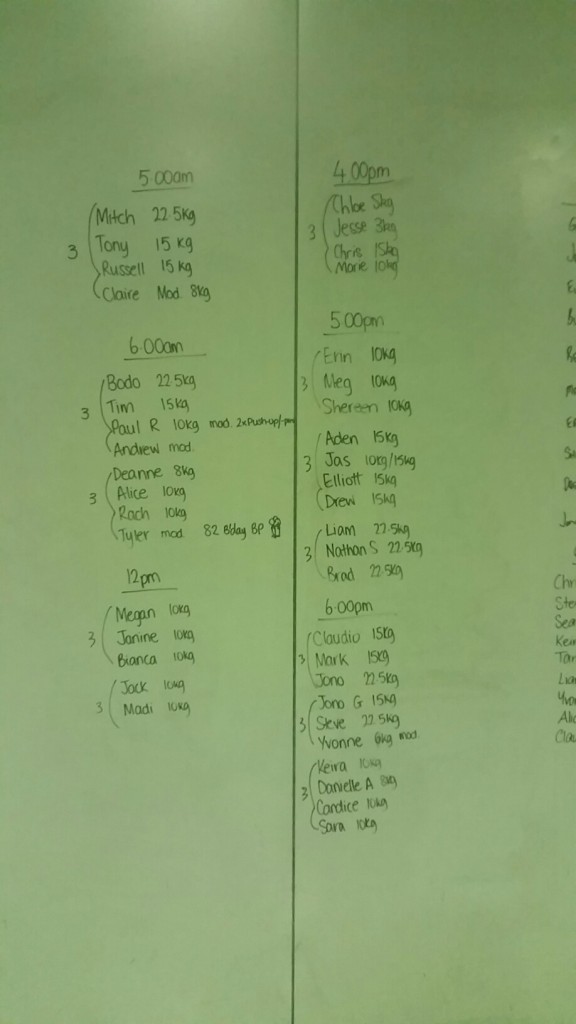 5:00am
3
Mitch 22.5kg
Tony 15kg
Russell 15kg
Claire Mod. 8kg
6:00am
3
Bodo 22.5kg
Tim 15kg
Paul R 10kg mod. 2xPushup/
Andrew mod.
3
Deanne 8kg
Alice 10kg
Rach 10kg
Tyler mod 82 Bday BP
12pm
3
Megan 10kg
Janine 10kg
Bianca 10kg
3
Jack 10kg
Madi 10kg
4:00pm
3
Chloe 5kg
Jesse 3kg
Chris 15kg
Marie 10kg
5:00pm
3
Erin 10kg
Meg 10kg
Shereen 10kg
3
Aden 15kg
Jas 10kg/15kg
Elliott 15kg
Drew 15kg
3
Liam 22.5kg
Nathan S 22.5kg
Brad 22.5kg
6:00pm
3
Claudio 15kg
Mark 15kg
Jono 22.5kg
3
Jono G 15kg
Steve 22.5kg
Yvonne 6kg mod
3
Keira 10kg
Danielle A 8kg
Candice 10kg
Sara 10kg
Chr
Ste
Sea
Keir
Tar
Lia
Yvo
Alic
Clau